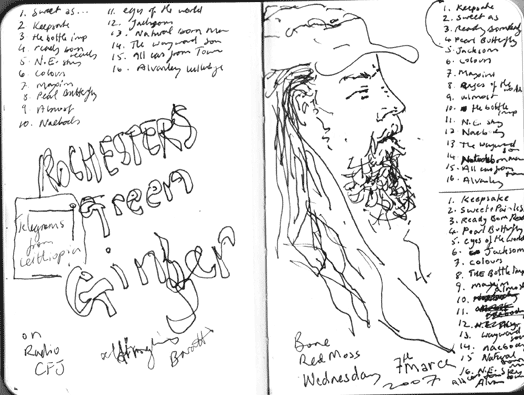 1. Sweet as...
2 Keepsake
3 The bottle imp
4. ready born
5. N.E. sky
6 Colours
7 Maxim's
8 Pearl Butterfly
9 Almost
10. Naebods
11. eyes of the world
12. Jackson
13. Natural born man
14. The wayward son
15. All cas from Town
16. Alvanley
ROCHESTER'S
Green
Ginger
Telegrams
from
on
Radio
CFJ
1. Keepsake
2. Sweet as
3. Ready
4 Pearl Butterfly
5. Jackson
6. Colours
7. Maxims
8. Eyes of the world
9. almost
10. the bottle imp
11. N.E. sky
12 Naebods
13 The wayward son
14 Natural born man
15. All cas from
16. Alvanley
1. Keepsake
2. Sweet
3. Ready Born
4. Pearl Butterfly
5. eyes of the World
6. Jackson
7. colours
8. THE BOTTLE Imp
9. maxim
10. Almost
11.
12. N.E. Sky
13. wayward son
14. naebods
15 Natural
16. N.E. Sky
all cas
Alvan
Bone
Red Moss
Wednesday 7th March
2007